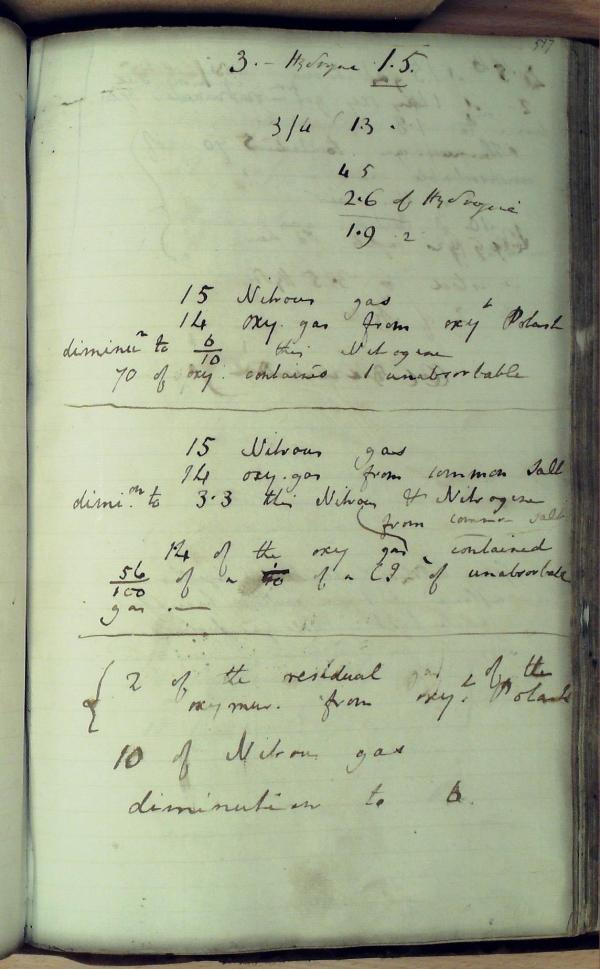 517
3. - Hydrogene 1.5.
3/4 13.
45
2.6 of Hydrogene
1.9 2
15 Nitrous gas
14 oxy. gas from oxyt Potash
diminun to 6/10 this Nitrogene
70 of oxy. contained 1 unabsorbable
15 Nitrous gas
14 oxy. gas from common salt
dimion to 3.3 this Nitrous & Nitrogene
from common salt
14 of the oxy gas contained
56/100 of a of a of unabsorbable
gas —
2 of the residual gas of the
oxymur. from oxyt. Potash
10 of Nitrous gas
diminution to 6.